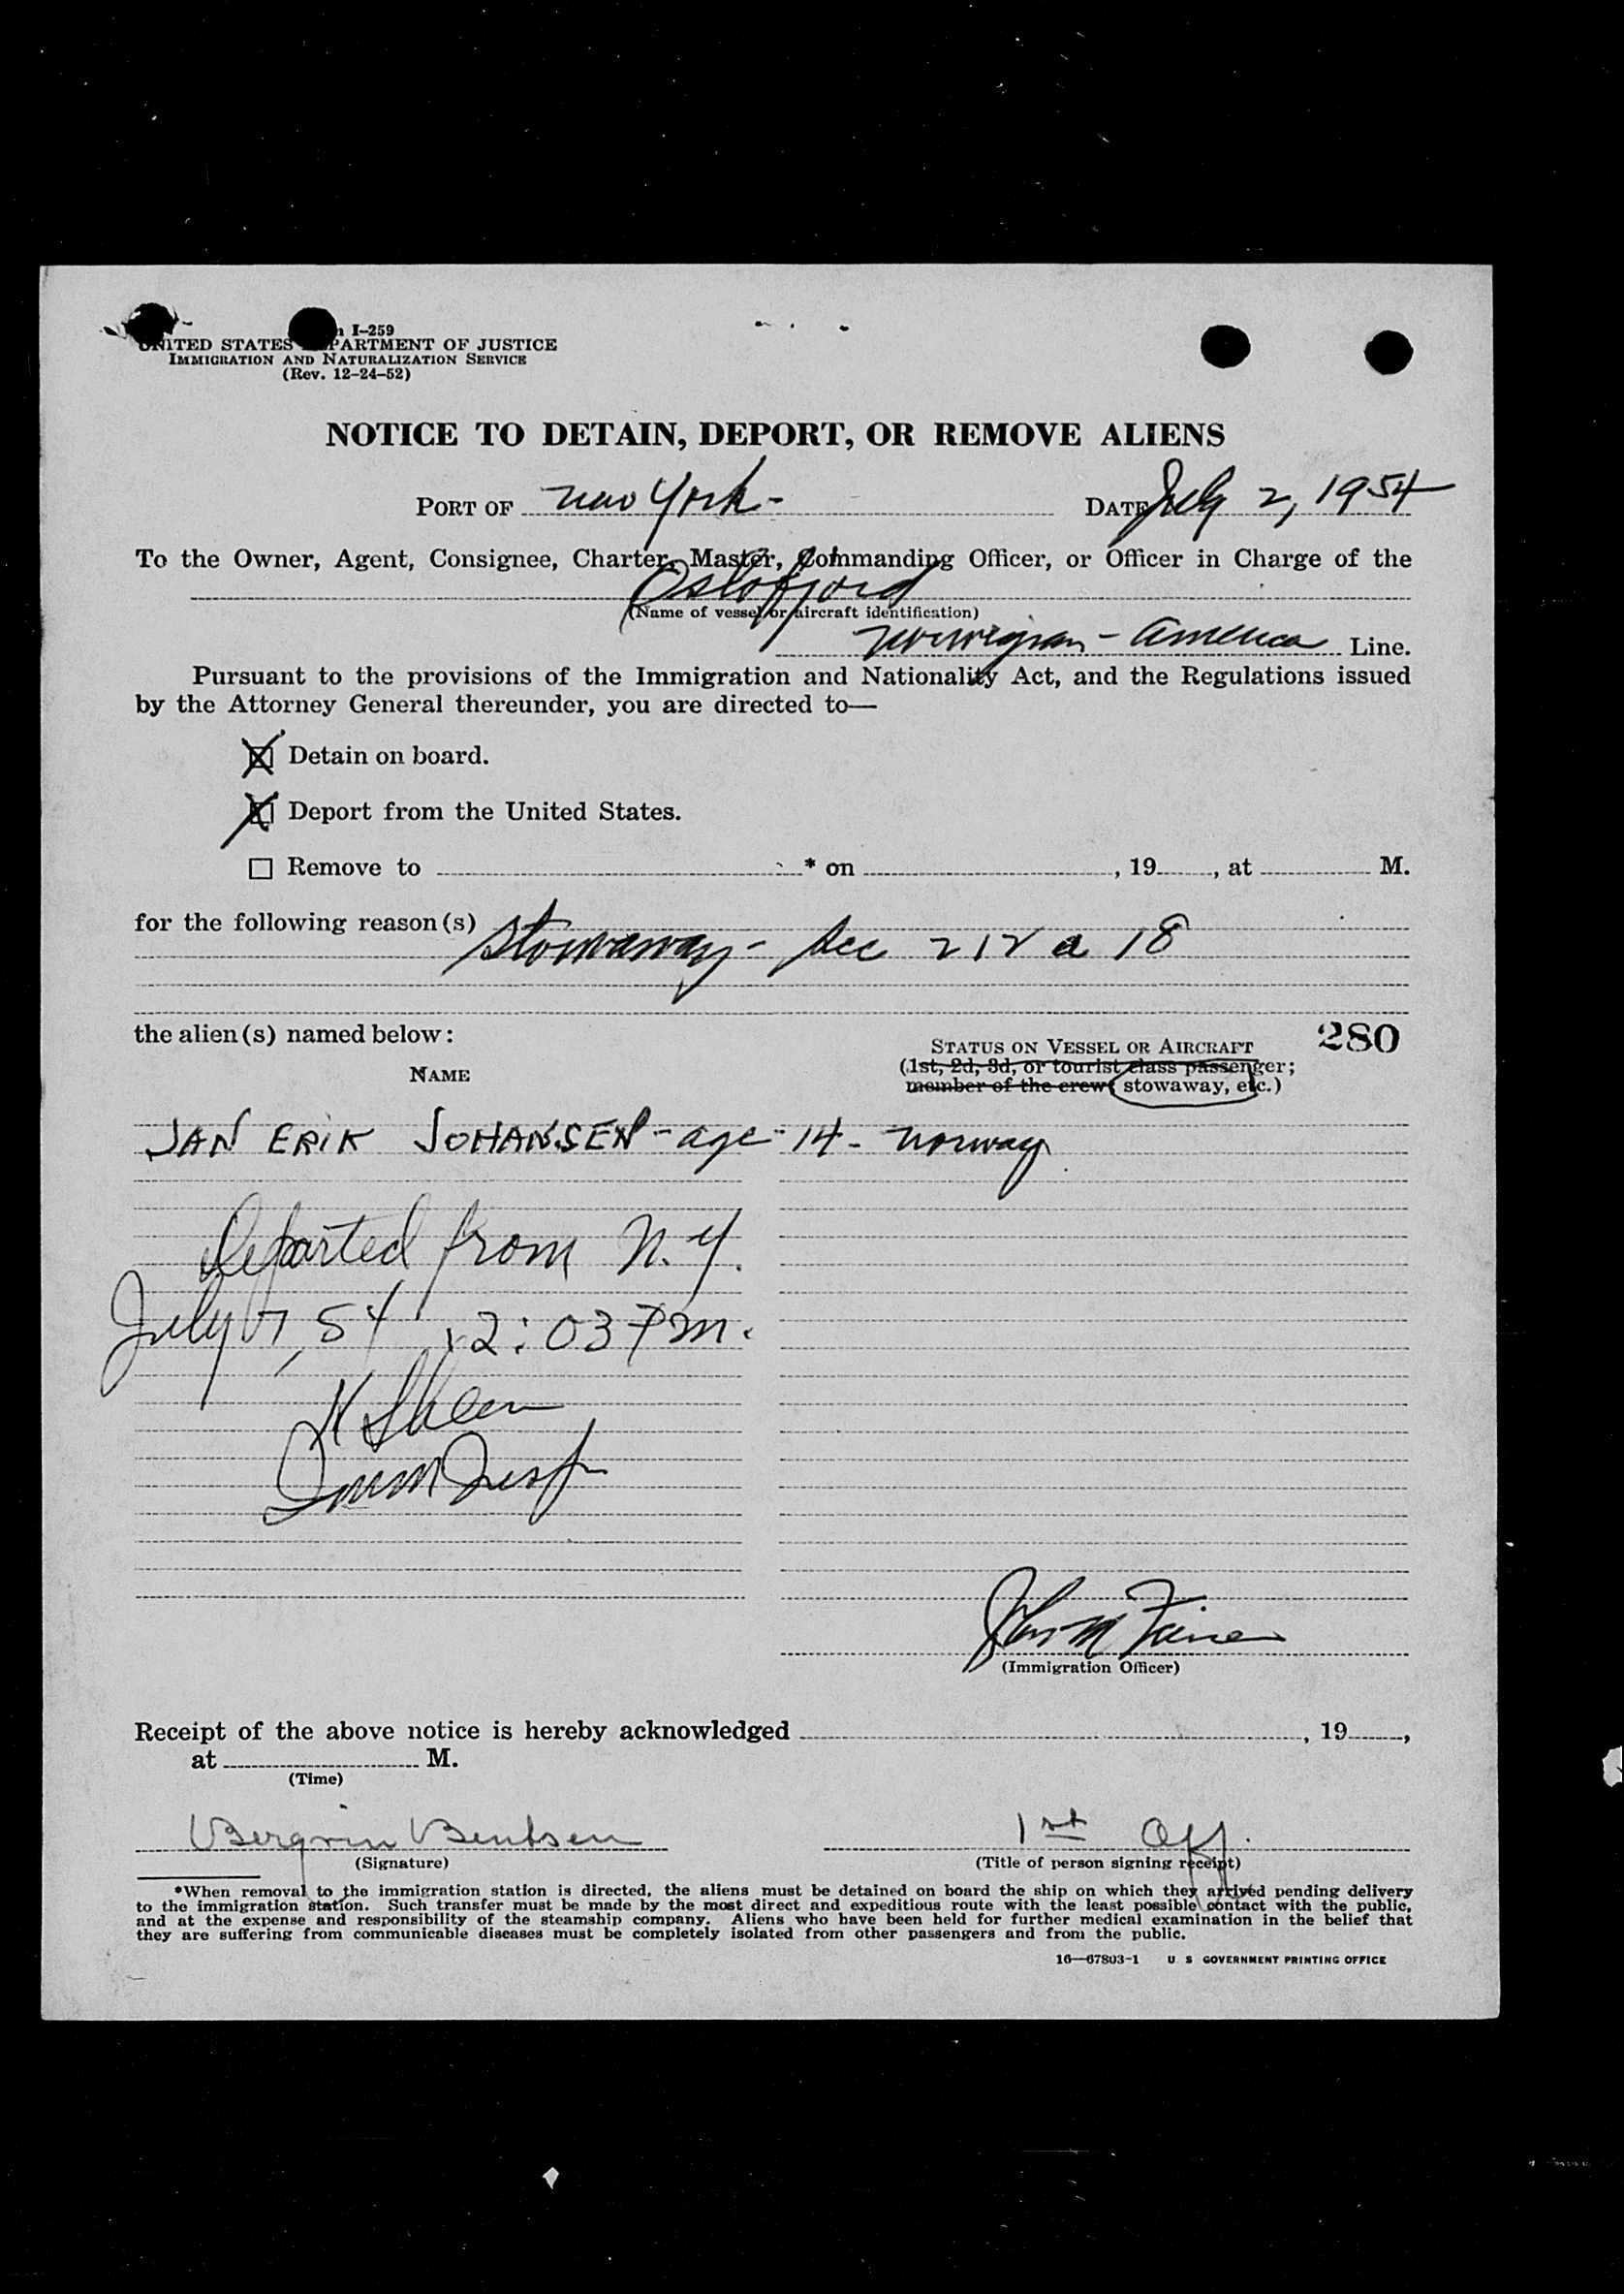 I-259
UNITED STATES DEPARTMENT OF JUSTICE
IMMIGRATION AND NATURALIZATION SERVICE
(Rev. 12-24-52)
NOTICE TO DETAIN, DEPORT, OR REMOVE ALIENS
PORT OF New York - DATE July 2, 1954
To the Owner, Agent, Consignee, Charter, Master, Commanding Officer, or Officer in Charge of the
Oslofjord
(Name of vessel or aircraft identification)
Norwegian - America Line.
Pursuant to the provisions of the Immigration and Nationality Act, and the Regulations issued
by the Attorney General thereunder, you are directed to—
Detain on board.
Deport from the United States.
Remove to * on , 19 , at M.
for the following reason(s)
Stowaway - Sec 212 a 18
the alien(s) named below:
280
STATUS ON VESSEL OR AIRCRAFT
(1st, 2d, 3d, or tourist class passenger;
member of the crew; stowaway, etc.)
NAME
JAN ERIK JOHANSEN - age - 14 - Norway
Departed from N.Y.
July 7, 54 12:03 PM.
Imm Insp
(Immigration Officer)
Receipt of the above notice is hereby acknowledged , 19 ,
at M.
(Time)
Bentsen 1st Off.
(Signature) (Title of person signing receipt)
*When removal to the immigration station is directed, the aliens must be detained on board the ship on which they arrived pending delivery
to the immigration station. Such transfer must be made by the most direct and expeditious route with the least possible contact with the public,
and at the expense and responsibility of the steamship company. Aliens who have been held for further medical examination in the belief that
they are suffering from communicable diseases must be completely isolated from other passengers and from the public.
16—67803-1 U S GOVERNMENT PRINTING OFFICE